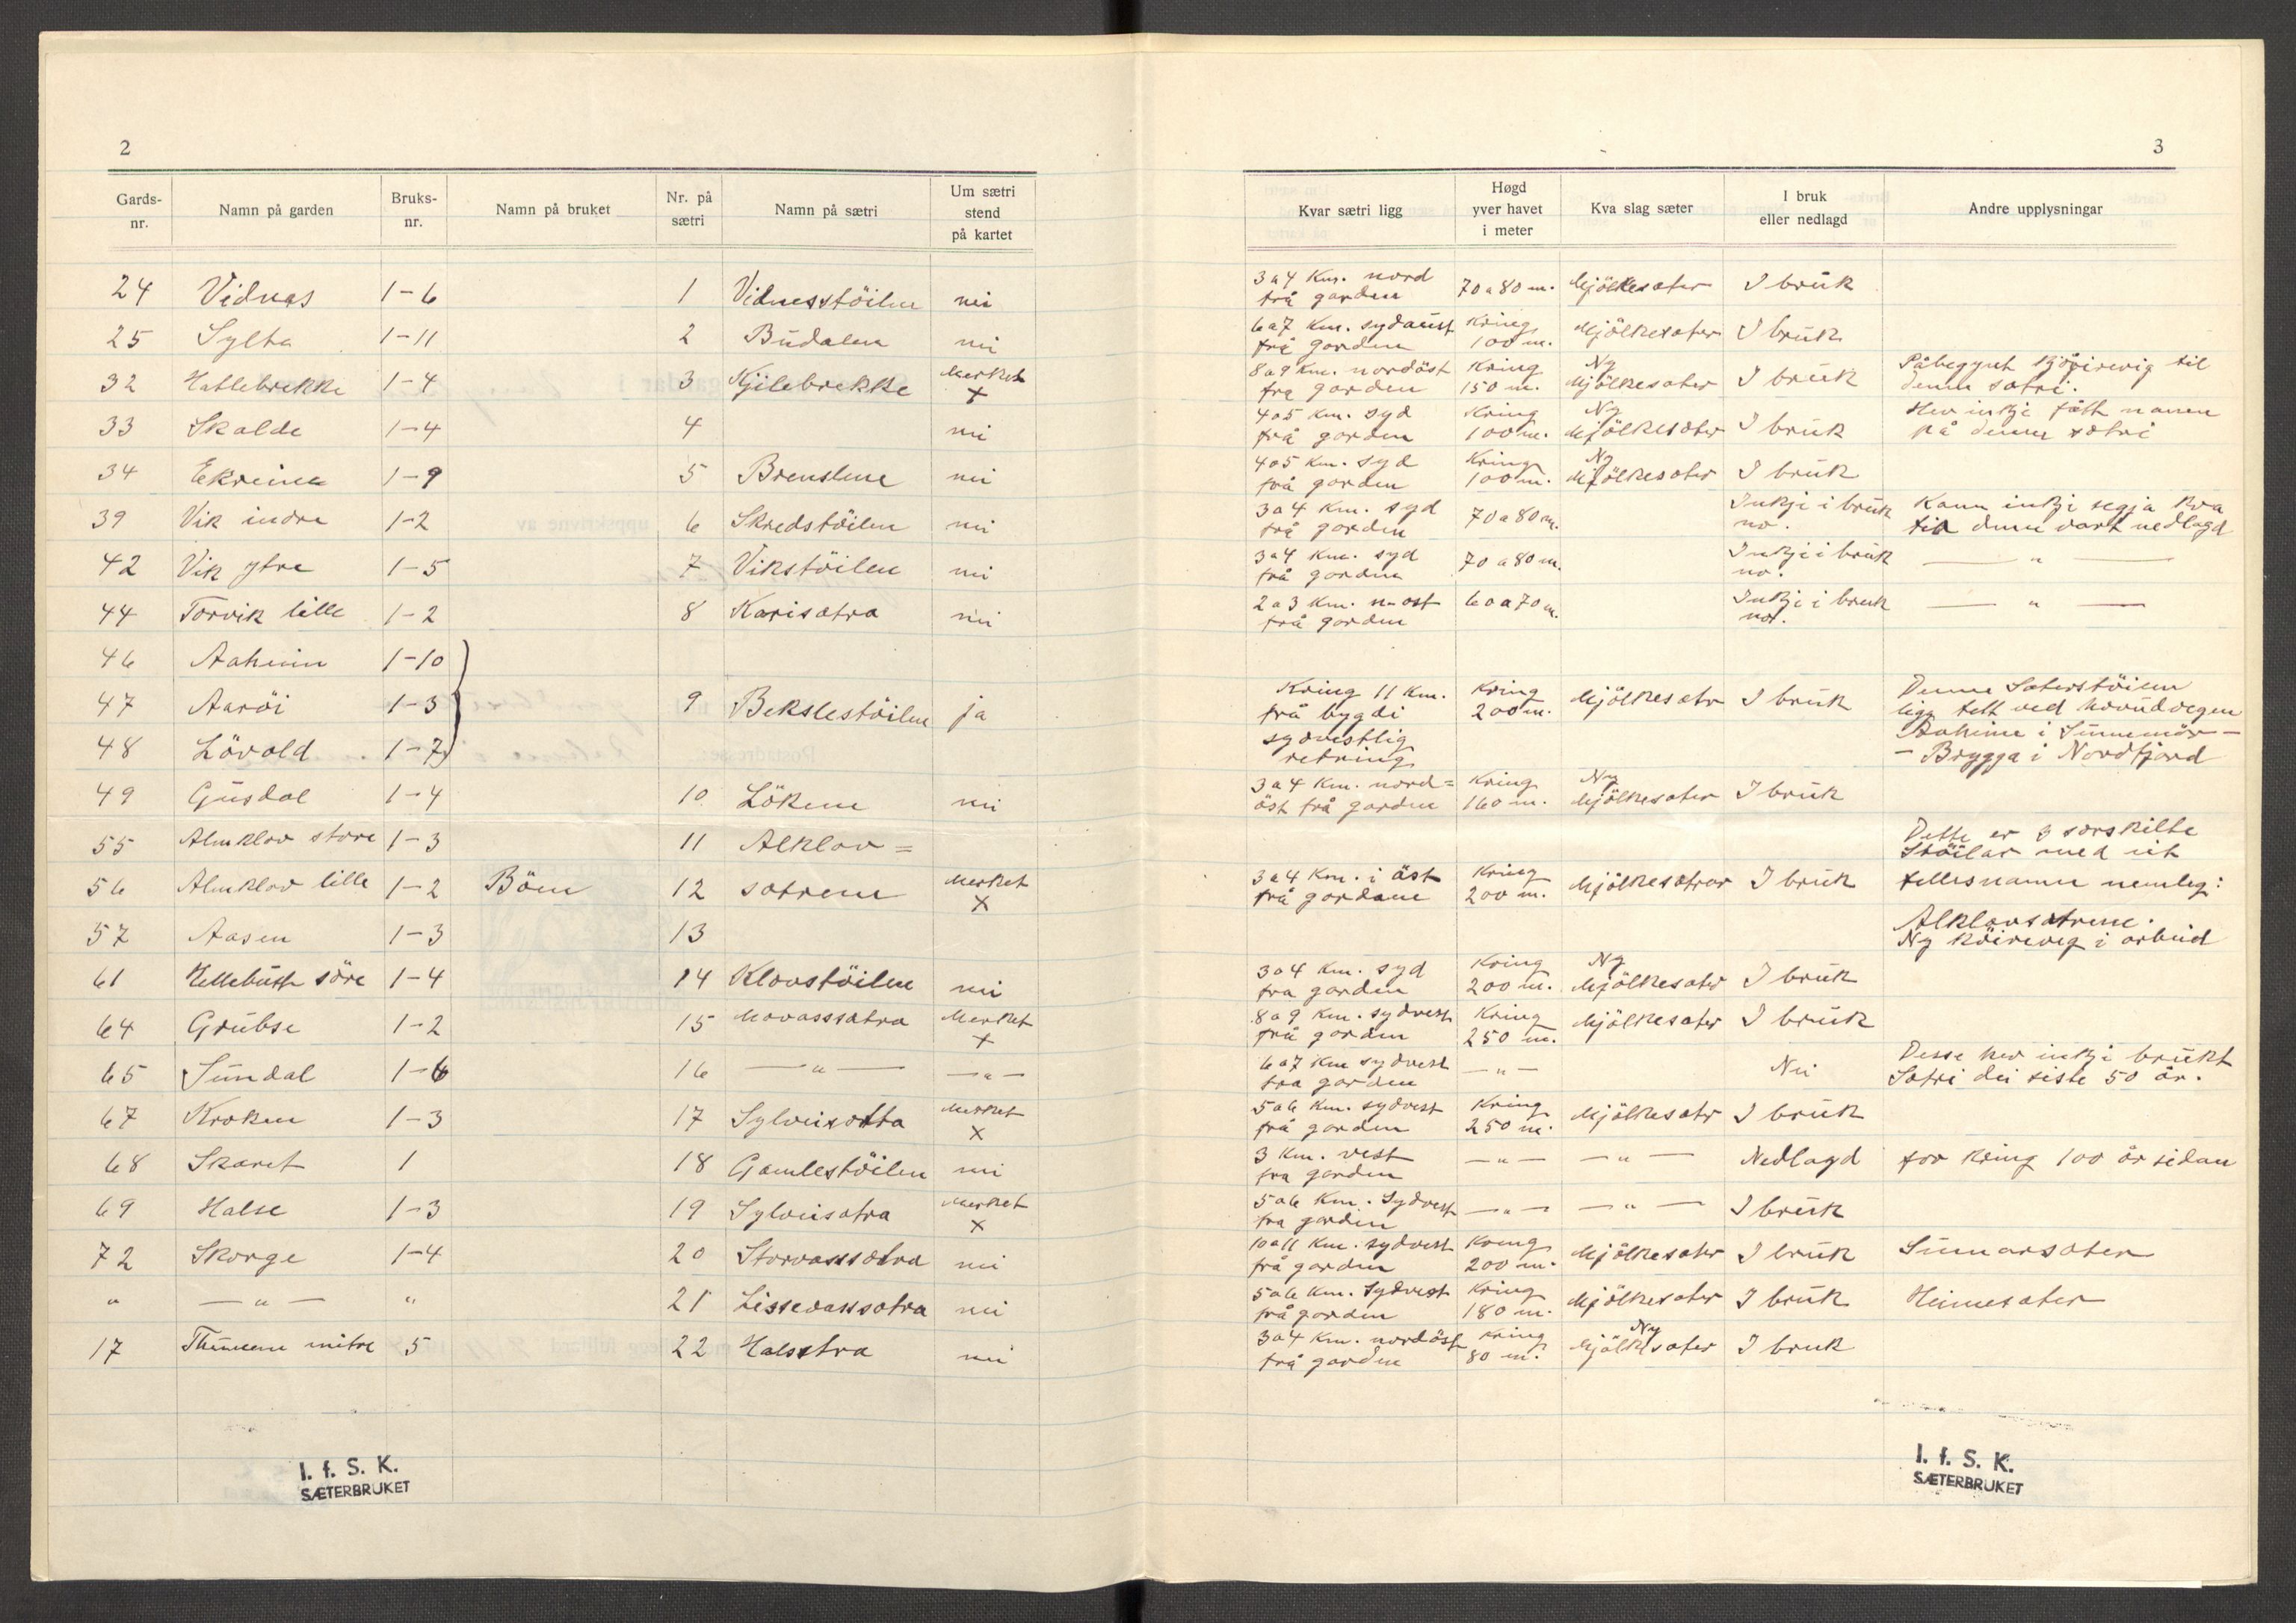 2
Gards-nr. Namn på garden Bruks-nr. Namn på bruket Nr. på sætri Namn på sætri Um sætri stend på kartet
24 Vidnas 1-6 1 Vidnesstöilen nei
25 Sylta 1-11 2 Budalen nei
32 Hatlebrekke 1-4 3 Kjilebrekke Merket x
33 Skalde 1-4 4 nei
34 Ekreina 1-9 5 Brenslene nei
39 Vik indre 1-2 6 Skredstöilen nei
42 Vik ytre 1-5 7 Vikstöilen nei
44 Torvik lille 1-2 8 Karisatra nei
46 Aaheim 1-10
47 Aaröi 1-3 9 Bekslestöilen ja
48 Lövold 1-7
49 Gusdal 1-4 10 Lökene nei
55 Almklov store 1-3 11 Alklov=
56 Almklov lille 1-2 Böen 12 satrene Merket x
57 Aasen 1-3 13
61 söre 1-4 14 Klovstöilen nei
64 Grubse 1-2 15 Movasssatra Merket x
65 Sundal 1-6 16 — " — — " —
67 Kroken 1-3 17 Merket x
68 Skaret 1 18 Gamlestöilen nei
69 Halse 1-3 19 Sylveisatra Merket x
72 Skorge 1-4 20 Storvasssatra nei
" — " — " 21 Lissevasssatra nei
17 mitre 5 22 Halsetra nei
I. f. S. K.
SÆTERBRUKET
3
Kvar sætri ligg Høgd yver havet i meter Kva slag sæter I bruk eller nedlagd Andre upplysningar
3 a 4 Km. nord
frå garden 70 a 80 m. Mjölkesater I bruk
6 a 7 Km. sydaust
frå garden Kring 100 m. Mjölkesater I bruk
8 a 9 Km. nordöst
fra garden Kring 150 m. Ny Mjölkesater I bruk Påbegynt til
denne satri.
4 a 5 Km. syd
frå garden Kring 100 m. Ny Mjölkesater I bruk Hev inkje fått namn
på denne satri
4 a 5 Km. syd
frå garden Kring 100 m. Ny Mjölkesater I bruk
3 a 4 Km. syd
frå garden 70 a 80 m. Inkje i bruk no. Kann inkje segja kva
tid denne vart nedlagd
3 a 4 Km. syd
frå garden 70 a 80 m. Inkje i bruk no. — " —
2 a 3 Km. n-ost
frå garden 60 a 70 m. Inkje i bruk no. — " —
Kring 11 Km.
frå bygdi
sydvestlig
retning Kring 200 m. Mjölkesatr I bruk Denne Saterstöilen
ligg tett ved hovudvegen
Aaheim i Sunnmör —
— Brygga i Nordfjord
3 a 4 Km. nord=
öst frå garden Kring 160 m. Ny Mjölkesater I bruk
3 a 4 Km. i äst
frå gardane Kring 200 m. Mjölkesatrar I bruk Dette er 3 sarskilte
Stöilar med eit
fellesnamn nemleg:
Alklovsatrene.
Ny köireveg i arbeid
3 a 4 Km. syd
fra garden Kring 200 m. Ny Mjölkesater I bruk
8 a 9 Km. sydvest
frå garden Kring 250 m. Mjölkesater I bruk
6 a 7 Km sydvest
fra garden — " — Nei Desse hev inkje brukt
Satri dei siste 50 år.
5 a 6 Km. sydvest
frå garden Kring 250 m. Mjölkesatr I bruk
3 Km. vest
fra garden — " — — " — Nedlagd for kring 100 år sidan
5 a 6 Km. Sydvest
fra garden — " — — " — I bruk
10 a 11 Km. sydvest
frå garden Kring 200 m. Mjölkesater I bruk Sumarsater
5 a 6 Km. Sydvest
frå garden Kring 180 m. Mjölkesater I bruk Heimesater
3 a 4 Km. nordöst
frå garden Kring 80 m. Ny Mjölkesater I bruk
I. f. S. K.
SÆTERBRUKET